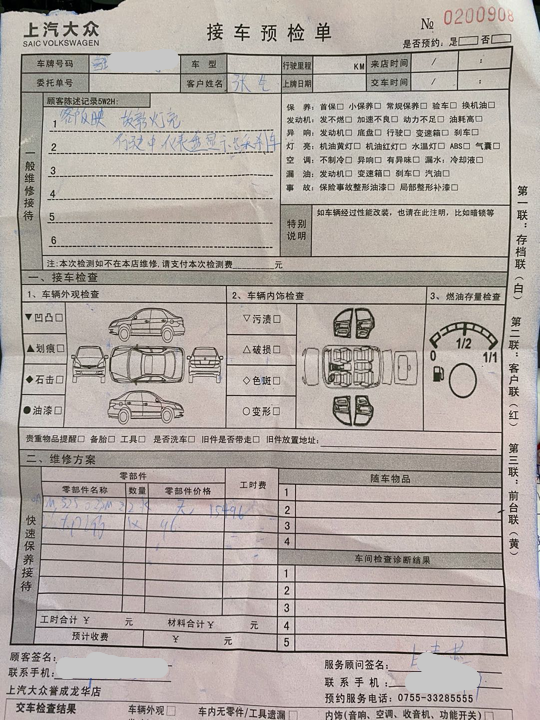 上汽大众
SAIC VOLKSWAGEN
接车预检单
№ 0200908
是否预约：是□ 否□
车牌号码 车型 行驶里程 KM 来店时间 / :
委托单号 客户姓名 上牌日期 交车时间 / :
一般维修接待
顾客陈述记录5W2H：
1 客户反映 故障灯亮
2
3
4
5
6
保养：首保□ 小保养□ 常规保养□ 验车□ 换机油□
发动机：发不燃□ 加速不良□ 动力不足□ 油耗高□
异响：发动机□ 底盘□ 行驶□ 变速箱□ 刹车□
灯亮：机油黄灯□ 机油红灯□ 水温灯□ ABS□ 气囊□
空调：不制冷□ 异响□ 有异味□ 漏水：冷却液□
漏油：发动机□ 变速箱□ 刹车□ 汽油□
事故：保险事故整形油漆□ 局部整形补漆□
特别说明
如车辆经过性能改装，也请在此注明，比如暗锁等
注：本次检测如不在本店维修，请支付本次检测费 元
一、接车检查
1、车辆外观检查
2、车辆内饰检查
3、燃油存量检查
▼凹凸□
▲划痕□
◆石击□
●油漆□
▽污渍□
△破损□
◇色斑□
○变形□
0 1/2 1/1
贵重物品提醒□ 备胎□ 工具□ 是否洗车□ 旧件是否带走□ 旧件放置地址：
二、维修方案
快速保养接待
零部件
零部件名称 数量 零部件价格 工时费
随车物品
1
2
3
4
车间检查诊断结果
1
2
3
4
5
工时合计 ¥ 元 材料合计 ¥ 元
预计收费 ¥ 元
顾客签名：
联系手机：
上汽大众誉成龙华店
服务顾问签名：
联系手机：
预约服务电话：0755-33285555
交车检查结果 车辆外观□ 车内无零件/工具遗漏□ 内饰(音响、空调、收音机、功能开关)□
第一联：存档联（白） 第二联：客户联（红） 第三联：前台联（黄）